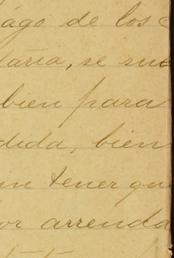 ago de los
taria, se sus
bien para
dida, bien
in tener que
or arrenda